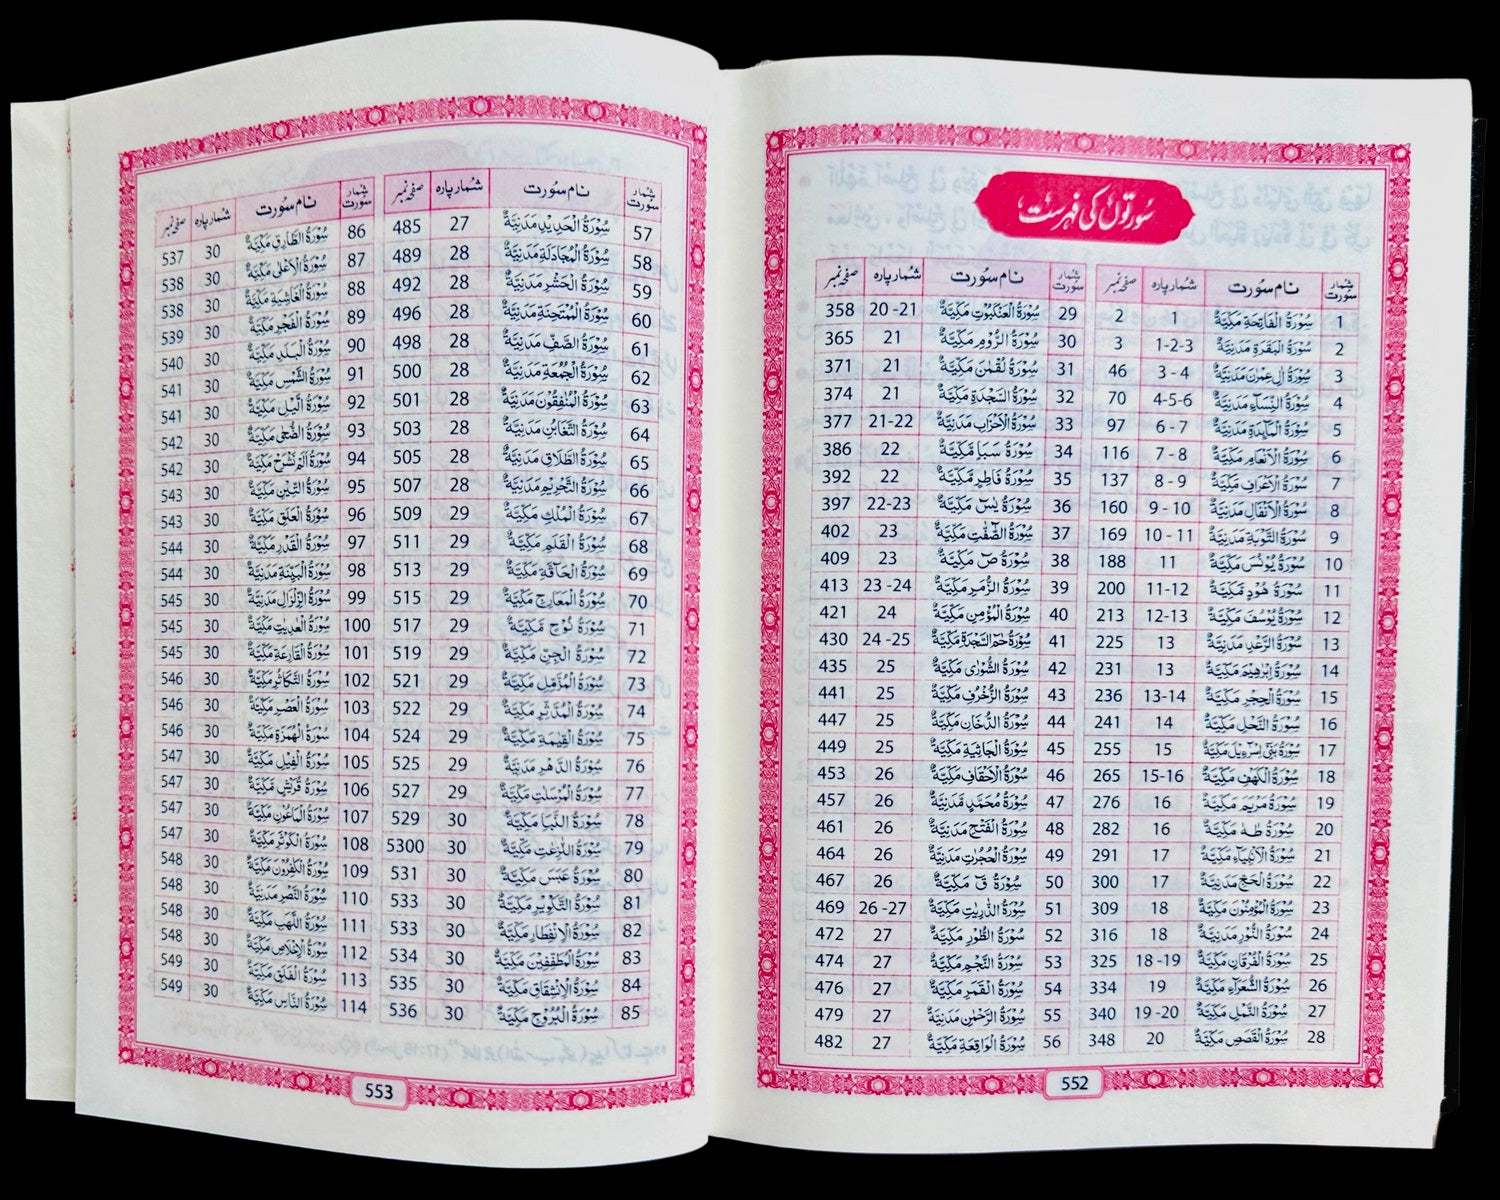 سُورتوں کی فہرست
شمار سورت نام سُورت شمار پارہ صفحہ نمبر
1 سُوْرَةُ الْفَاتِحَةِ مَكِّيَّةٌ 1 2
2 سُوْرَةُ الْبَقَرَةِ مَدَنِيَّةٌ 1-2-3 3
3 سُوْرَةُ اٰلِ عِمْرٰنَ مَدَنِيَّةٌ 3 - 4 46
4 سُوْرَةُ النِّسَآءِ مَدَنِيَّةٌ 4-5-6 70
5 سُوْرَةُ الْمَآئِدَةِ مَدَنِيَّةٌ 6 - 7 97
6 سُوْرَةُ الْاَنْعَامِ مَكِّيَّةٌ 7 - 8 116
7 سُوْرَةُ الْاَعْرَافِ مَكِّيَّةٌ 8 - 9 137
8 سُوْرَةُ الْاَنْفَالِ مَدَنِيَّةٌ 9 - 10 160
9 سُوْرَةُ التَّوْبَةِ مَدَنِيَّةٌ 10 - 11 169
10 سُوْرَةُ يُوْنُسَ مَكِّيَّةٌ 11 188
11 سُوْرَةُ هُوْدٍ مَّكِّيَّةٌ 11-12 200
12 سُوْرَةُ يُوْسُفَ مَكِّيَّةٌ 12-13 213
13 سُوْرَةُ الرَّعْدِ مَدَنِيَّةٌ 13 225
14 سُوْرَةُ اِبْرٰهِيْمَ مَكِّيَّةٌ 13 231
15 سُوْرَةُ الْحِجْرِ مَكِّيَّةٌ 13-14 236
16 سُوْرَةُ النَّحْلِ مَكِّيَّةٌ 14 241
17 سُوْرَةُ بَنِيْٓ اِسْرَآءِيْلَ مَكِّيَّةٌ 15 255
18 سُوْرَةُ الْكَهْفِ مَكِّيَّةٌ 15-16 265
19 سُوْرَةُ مَرْيَمَ مَكِّيَّةٌ 16 276
20 سُوْرَةُ طٰهٰ مَكِّيَّةٌ 16 282
21 سُوْرَةُ الْاَنْبِيَآءِ مَكِّيَّةٌ 17 291
22 سُوْرَةُ الْحَجِّ مَدَنِيَّةٌ 17 300
23 سُوْرَةُ الْمُؤْمِنُوْنَ مَكِّيَّةٌ 18 309
24 سُوْرَةُ النُّوْرِ مَدَنِيَّةٌ 18 316
25 سُوْرَةُ الْفُرْقَانِ مَكِّيَّةٌ 18 -19 325
26 سُوْرَةُ الشُّعَرَآءِ مَكِّيَّةٌ 19 334
27 سُوْرَةُ النَّمْلِ مَكِّيَّةٌ 19 -20 340
28 سُوْرَةُ الْقَصَصِ مَكِّيَّةٌ 20 348
شمار سورت نام سُورت شمار پارہ صفحہ نمبر
29 سُوْرَةُ الْعَنْكَبُوْتِ مَكِّيَّةٌ 20 -21 358
30 سُوْرَةُ الرُّوْمِ مَكِّيَّةٌ 21 365
31 سُوْرَةُ لُقْمٰنَ مَكِّيَّةٌ 21 371
32 سُوْرَةُ السَّجْدَةِ مَكِّيَّةٌ 21 374
33 سُوْرَةُ الْاَحْزَابِ مَدَنِيَّةٌ 21-22 377
34 سُوْرَةُ سَبَاٍ مَّكِّيَّةٌ 22 386
35 سُوْرَةُ فَاطِرٍ مَّكِّيَّةٌ 22 392
36 سُوْرَةُ يٰسٓ مَكِّيَّةٌ 22-23 397
37 سُوْرَةُ الصّٰٓفّٰتِ مَكِّيَّةٌ 23 402
38 سُوْرَةُ صٓ مَكِّيَّةٌ 23 409
39 سُوْرَةُ الزُّمَرِ مَكِّيَّةٌ 23 -24 413
40 سُوْرَةُ الْمُؤْمِنِ مَكِّيَّةٌ 24 421
41 سُوْرَةُ حٰمٓ السَّجْدَةِ مَكِّيَّةٌ 24 -25 430
42 سُوْرَةُ الشُّوْرٰى مَكِّيَّةٌ 25 435
43 سُوْرَةُ الزُّخْرُفِ مَكِّيَّةٌ 25 441
44 سُوْرَةُ الدُّخَانِ مَكِّيَّةٌ 25 447
45 سُوْرَةُ الْجَاثِيَةِ مَكِّيَّةٌ 25 449
46 سُوْرَةُ الْاَحْقَافِ مَكِّيَّةٌ 26 453
47 سُوْرَةُ مُحَمَّدٍ مَّدَنِيَّةٌ 26 457
48 سُوْرَةُ الْفَتْحِ مَدَنِيَّةٌ 26 461
49 سُوْرَةُ الْحُجُرٰتِ مَدَنِيَّةٌ 26 464
50 سُوْرَةُ قٓ مَكِّيَّةٌ 26 467
51 سُوْرَةُ الذّٰرِيٰتِ مَكِّيَّةٌ 26 -27 469
52 سُوْرَةُ الطُّوْرِ مَكِّيَّةٌ 27 472
53 سُوْرَةُ النَّجْمِ مَكِّيَّةٌ 27 474
54 سُوْرَةُ الْقَمَرِ مَكِّيَّةٌ 27 476
55 سُوْرَةُ الرَّحْمٰنِ مَدَنِيَّةٌ 27 479
56 سُوْرَةُ الْوَاقِعَةِ مَكِّيَّةٌ 27 482
552
شمار سورت نام سُورت شمار پارہ صفحہ نمبر
57 سُوْرَةُ الْحَدِيْدِ مَدَنِيَّةٌ 27 485
58 سُوْرَةُ الْمُجَادَلَةِ مَدَنِيَّةٌ 28 489
59 سُوْرَةُ الْحَشْرِ مَدَنِيَّةٌ 28 492
60 سُوْرَةُ الْمُمْتَحِنَةِ مَدَنِيَّةٌ 28 496
61 سُوْرَةُ الصَّفِّ مَدَنِيَّةٌ 28 498
62 سُوْرَةُ الْجُمُعَةِ مَدَنِيَّةٌ 28 500
63 سُوْرَةُ الْمُنٰفِقُوْنَ مَدَنِيَّةٌ 28 501
64 سُوْرَةُ التَّغَابُنِ مَدَنِيَّةٌ 28 503
65 سُوْرَةُ الطَّلَاقِ مَدَنِيَّةٌ 28 505
66 سُوْرَةُ التَّحْرِيْمِ مَدَنِيَّةٌ 28 507
67 سُوْرَةُ الْمُلْكِ مَكِّيَّةٌ 29 509
68 سُوْرَةُ الْقَلَمِ مَكِّيَّةٌ 29 511
69 سُوْرَةُ الْحَآقَّةِ مَكِّيَّةٌ 29 513
70 سُوْرَةُ الْمَعَارِجِ مَكِّيَّةٌ 29 515
71 سُوْرَةُ نُوْحٍ مَّكِّيَّةٌ 29 517
72 سُوْرَةُ الْجِنِّ مَكِّيَّةٌ 29 519
73 سُوْرَةُ الْمُزَّمِّلِ مَكِّيَّةٌ 29 521
74 سُوْرَةُ الْمُدَّثِّرِ مَكِّيَّةٌ 29 522
75 سُوْرَةُ الْقِيٰمَةِ مَكِّيَّةٌ 29 524
76 سُوْرَةُ الدَّهْرِ مَدَنِيَّةٌ 29 525
77 سُوْرَةُ الْمُرْسَلٰتِ مَكِّيَّةٌ 29 527
78 سُوْرَةُ النَّبَاِ مَكِّيَّةٌ 30 529
79 سُوْرَةُ النّٰزِعٰتِ مَكِّيَّةٌ 30 5300
80 سُوْرَةُ عَبَسَ مَكِّيَّةٌ 30 531
81 سُوْرَةُ التَّكْوِيْرِ مَكِّيَّةٌ 30 533
82 سُوْرَةُ الْاِنْفِطَارِ مَكِّيَّةٌ 30 533
83 سُوْرَةُ الْمُطَفِّفِيْنَ مَكِّيَّةٌ 30 534
84 سُوْرَةُ الْاِنْشِقَاقِ مَكِّيَّةٌ 30 535
85 سُوْرَةُ الْبُرُوْجِ مَكِّيَّةٌ 30 536
شمار سورت نام سُورت شمار پارہ صفحہ نمبر
86 سُوْرَةُ الطَّارِقِ مَكِّيَّةٌ 30 537
87 سُوْرَةُ الْاَعْلٰى مَكِّيَّةٌ 30 538
88 سُوْرَةُ الْغَاشِيَةِ مَكِّيَّةٌ 30 538
89 سُوْرَةُ الْفَجْرِ مَكِّيَّةٌ 30 539
90 سُوْرَةُ الْبَلَدِ مَكِّيَّةٌ 30 540
91 سُوْرَةُ الشَّمْسِ مَكِّيَّةٌ 30 541
92 سُوْرَةُ الَّيْلِ مَكِّيَّةٌ 30 541
93 سُوْرَةُ الضُّحٰى مَكِّيَّةٌ 30 542
94 سُوْرَةُ اَلَمْ نَشْرَحْ مَكِّيَّةٌ 30 542
95 سُوْرَةُ التِّيْنِ مَكِّيَّةٌ 30 543
96 سُوْرَةُ الْعَلَقِ مَكِّيَّةٌ 30 543
97 سُوْرَةُ الْقَدْرِ مَكِّيَّةٌ 30 544
98 سُوْرَةُ الْبَيِّنَةِ مَدَنِيَّةٌ 30 544
99 سُوْرَةُ الزِّلْزَالِ مَدَنِيَّةٌ 30 545
100 سُوْرَةُ الْعٰدِيٰتِ مَكِّيَّةٌ 30 545
101 سُوْرَةُ الْقَارِعَةِ مَكِّيَّةٌ 30 545
102 سُوْرَةُ التَّكَاثُرِ مَكِّيَّةٌ 30 546
103 سُوْرَةُ الْعَصْرِ مَكِّيَّةٌ 30 546
104 سُوْرَةُ الْهُمَزَةِ مَكِّيَّةٌ 30 546
105 سُوْرَةُ الْفِيْلِ مَكِّيَّةٌ 30 547
106 سُوْرَةُ قُرَيْشٍ مَّكِّيَّةٌ 30 547
107 سُوْرَةُ الْمَاعُوْنِ مَكِّيَّةٌ 30 547
108 سُوْرَةُ الْكَوْثَرِ مَكِّيَّةٌ 30 547
109 سُوْرَةُ الْكٰفِرُوْنَ مَكِّيَّةٌ 30 548
110 سُوْرَةُ النَّصْرِ مَدَنِيَّةٌ 30 548
111 سُوْرَةُ اللَّهَبِ مَكِّيَّةٌ 30 548
112 سُوْرَةُ الْاِخْلَاصِ مَكِّيَّةٌ 30 548
113 سُوْرَةُ الْفَلَقِ مَكِّيَّةٌ 30 549
114 سُوْرَةُ النَّاسِ مَكِّيَّةٌ 30 549
553